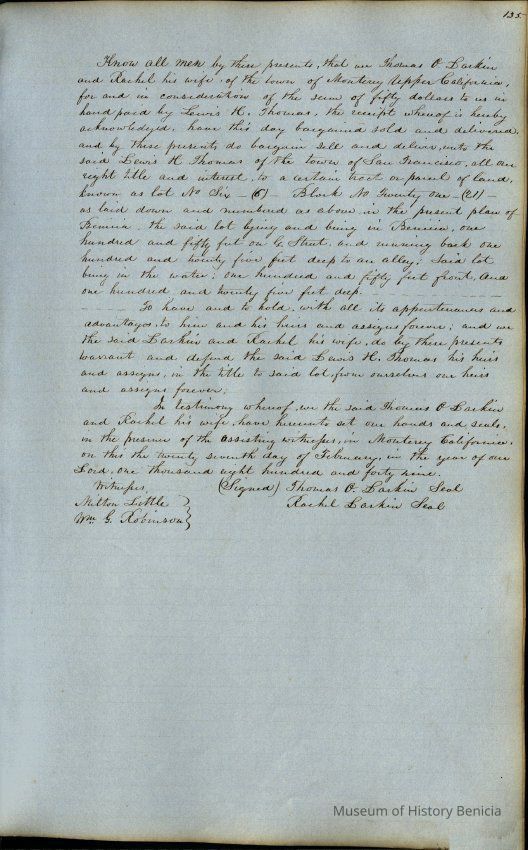 135
Know all men by these presents, that we Thomas O Larkin
and Rachel his wife, of the town of Monterey Upper California,
for and in consideration of the sum of fifty dollars to us in
hand paid by Lewis H. Thomas, the receipt whereof is hereby
acknowledged, have this day bargained sold and delivered,
and by these presents do bargain sell and deliver, unto the
said Lewis H Thomas of the town of San Francisco, all our
right title and interest, to a certain tract or parcel of land,
known as lot No Six —(6)— Block No Twenty one —(21)—
as laid down and numbered as above in the present plan of
Benicia, the said lot lying and being in Benicia, one
hundred and fifty feet on G Street, and running back one
hundred and twenty five feet deep to an alley; Said lot
being in the water; one hundred and fifty feet front, and
one hundred and twenty five feet deep.
To have and to hold, with all its appurtenances and
advantages, to him and his heirs and assigns forever; and we
the said Larkin and Rachel his wife, do by these presents
warrant and defend the said Lewis H. Thomas his heirs
and assigns, in the title to said lot, from ourselves our heirs
and assigns forever.
In testimony whereof, we the said Thomas O Larkin
and Rachel his wife, have hereunto set our hands and seals,
in the presence of the assisting witnesses, in Monterey California,
on this the twenty seventh day of February, in the year of our
Lord, one thousand eight hundred and forty nine.
Witnesses (Signed) Thomas O. Larkin Seal
Milton Little } Rachel Larkin Seal
Wm. G. Robinson }
Museum of History Benicia